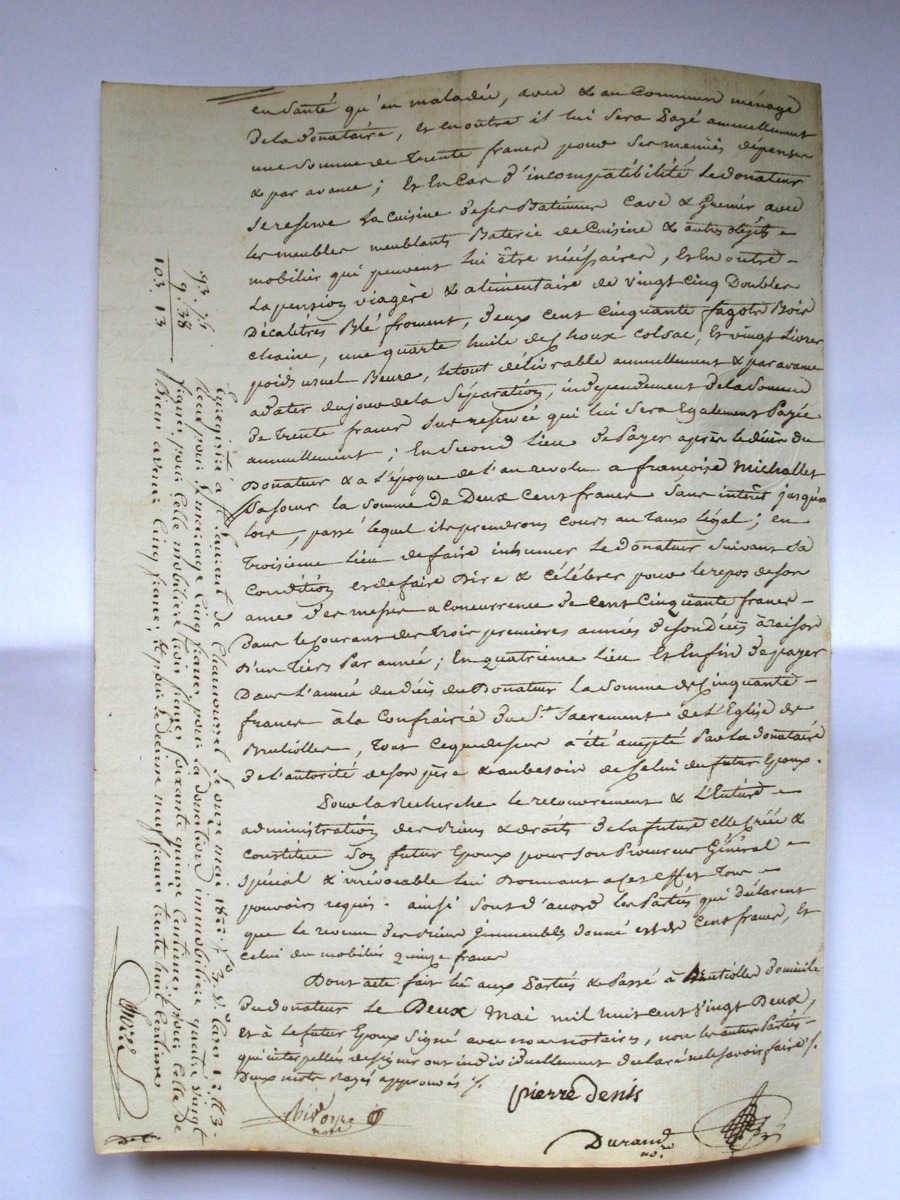 en Santé qu'en maladie, avec & au Commun ménage
De la Donataire, et en outre il lui Sera payé annuellement
une Somme de trente francs pour Ses menües dépenses
& par avance ; et En Cas D'incompatibilité Le Donateur
Se reserve La cuisine de Ses Batimens Cave & Grenier avec
les meubles meublants Baterie de Cuisine & autres objets
mobilier qui peuvent Lui être nécéssaires, et En outre
La pension viagère & alimentaire de vingt Cinq Doubles
Décalitres Blé froment, Deux cent Cinquante fagots Bois
chaine, une quarte huile de choux colsac, et vingt Livres
poids usuel Beure, le tout délivrable annuellement & par avance
a dater du jour de la Séparation, indépendament De la Somme
de trente francs Sus reservée qui lui Sera également payée
annuellement ; En Second Lieu de payer après le décès du
Donateur & a l'époque de l'an revolu a francoise Michallet
Sa Soeur la Somme De Deux Cent francs Sans interêt jusqu'a
lors, passé lequel ils prendrons cours au Taux légal ; en
troisième Lieu de faire inhumer Le Donateur Suivant Sa
Condition et de faire Dire & célébrer pour le repos de Son
ame Des messes a concurrence de Cent Cinquante francs
Dans le Courant des trois premières années de Son décès à raison
D'un tiers Par année ; En quatrieme Lieu et Enfin de payer
Dans L'année du décès du Donateur La Somme de Cinquante
francs à la Confrairie du St. Sacrement de L'Eglise de
Brullioles, tout ce que dessus a été accepté Par la Donataire
de l'autorité de Son père & au besoin de Celui du futur Epoux.
Pour la Recherche le recouvrement & L'Entière
administration des Biens & droits De la future elle crée &
constitue Son futur Epoux pour Son Procureur Général
Spécial & irrévocable lui Donnant a Cet effet Tous
pouvoirs requis. ainsi Sont d'accord les Parties qui déclarent
que le revenu des Biens immeubles donné est de Cent francs, et
Celui du mobilier quinze francs
Dont acte fait Lu aux Parties & Passé à Brullioles Domicile
Du donateur Le Deux Mai mil huit cent vingt Deux,
et à le futur Epoux Signé avec nous notaires, non les autres Parties
qui interpellées de Signer ont individuellement déclaré ne le Savoir faire /.
Deux mots Rayés approuvés /.
pierre denis
Durand
nore
note
93. 75
9. 38
103. 13
Enregistré à St Laurent de Chamousset le onze mai 1822 fo
Reçu pour le mariage Cinq francs, pour la donation immobilière quatre vingt
francs, pour Celle mobilière trois francs Soixante quinze Centimes, pour Celle de
Biens avenir Cinq francs, et pour le décime neuf francs trente huit Centimes